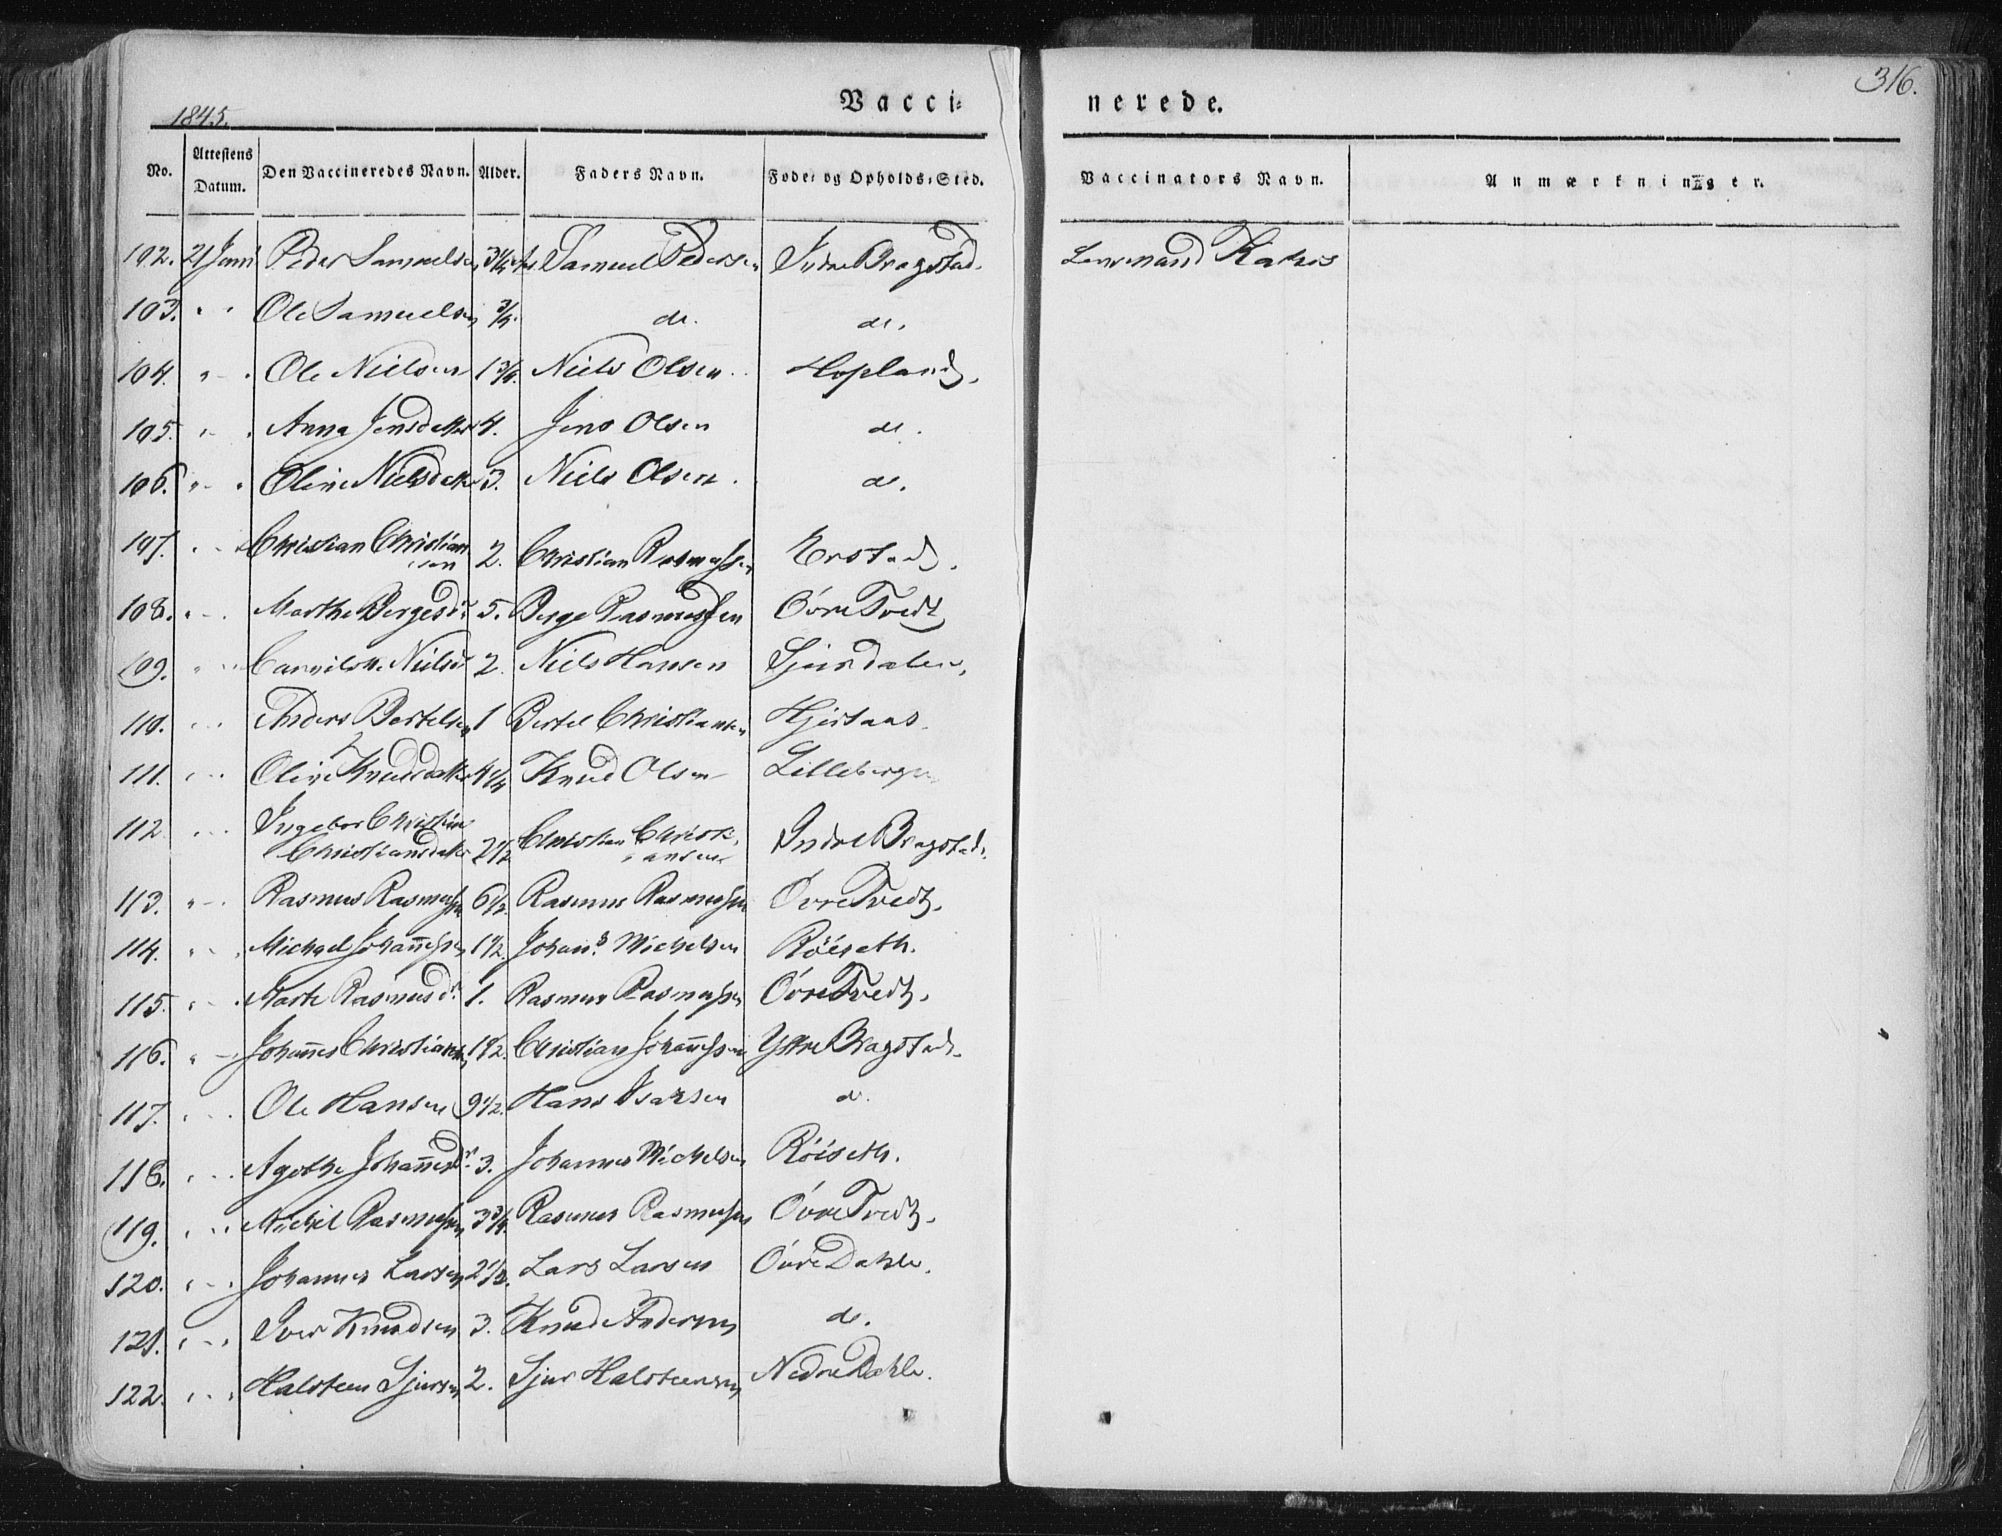 316.
1845.
Vacci-
nerede.
No. Attestens Datum. Den Vaccineredes Navn. Alder. Faders Navn. Føde- og Opholds-Sted. Vaccinators Navn. Anmærkninger.
102. 21 Juni Peder Samuelsen Samuel Pedersen Indre Bragstad. Lensmand
103. " " Ole Samuelsen 3/4. do. do.
104. " - . Ole Nielsen 1 3/4. Niels Olsen. Hopland.
105. " - . Anna Jensdatter 4. Jens Olsen do.
106. " - . Oline Nielsdatter 3. Niels Olsen. do.
107. " - Christian Christian
sen 2. Christian Rasmussen Erstad.
108. " - . Marthe Bergesdr. 5. Berge Rasmussen Övre Tvedt
109. " - Nielsd. 2. Niels Hansen
110. " - . Anders Bertelsen 1 Bertel Christiansen Hjertaas
111. " - . Oline Knudsdatter 4 1/4 Knud Olsen Lilleberge
112. " - . Ingebor Christine
Christiansdatter 2 1/2 Christian Christi-
ansen Indre Bragstad.
113. " - . Rasmus Rasmussen 6 1/2. Rasmus Rasmussen Övre Tvedt.
114. " - . Michael Johannessen 1 1/2. Johans. Michelsen Röiseth.
115. " - . Marte Rasmusdr. 1. Rasmus Rasmussen Övre Tvedt.
116. " - Johannes Christiansen 1 1/2. Christian Johannessen Ytre Bragstad.
117. " - . Ole Hansen 9 1/2. Hans Isaksen do.
118. " - . Agethe Johannesdr. 3. Johannes Michelsen Röiseth.
119. " - . Michel Rasmussen 3 3/4. Rasmus Rasmussen Övre Tvedt.
120. " - . Johannes Larsen 2 1/2. Lars Larsen Övre Dahle.
121. " - . Iver Knudsen 3. Knud Andersen do.
122. " - . Halsteen Sjursen 2. Sjur Halsteensen Nedre Dahle.